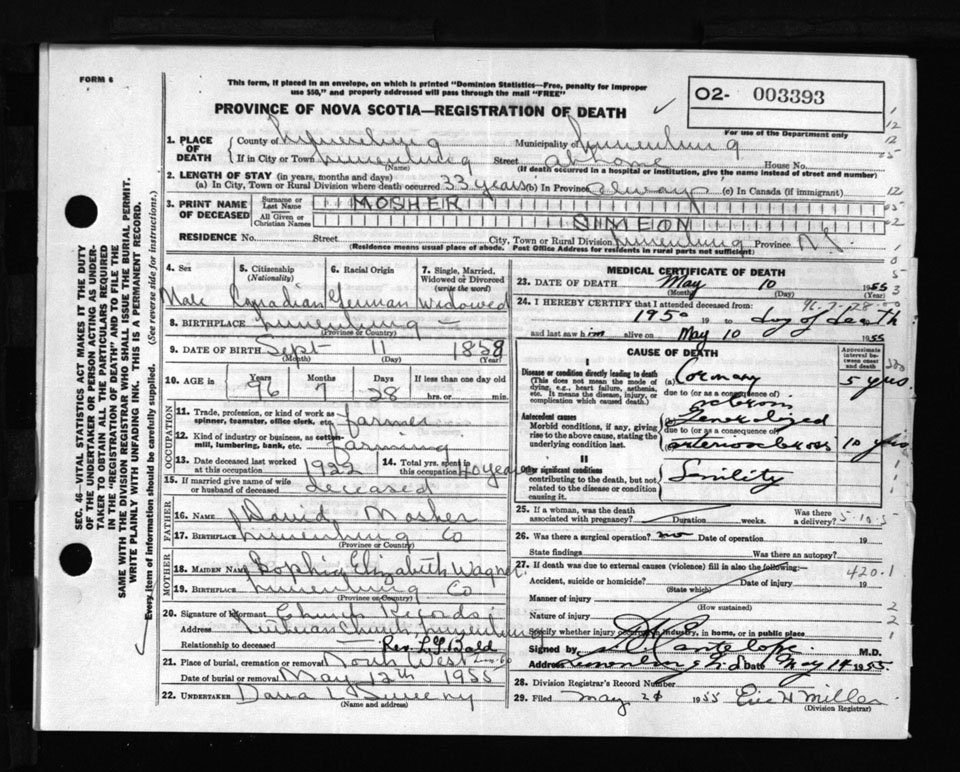 FORM 6
This form, if placed in an envelope, on which is printed "Dominion Statistics—Free, penalty for improper
use $50," and properly addressed will pass through the mail "FREE"
PROVINCE OF NOVA SCOTIA—REGISTRATION OF DEATH
02- 003393
For use of the Department only
SEC. 46—VITAL STATISTICS ACT MAKES IT THE DUTY
OF THE UNDERTAKER OR PERSON ACTING AS UNDER-
TAKER TO OBTAIN ALL THE PARTICULARS REQUIRED
IN THE "REGISTRATION OF DEATH" AND TO FILE THE
SAME WITH THE DIVISION REGISTRAR WHO SHALL ISSUE THE BURIAL PERMIT.
WRITE PLAINLY WITH UNFADING INK. THIS IS A PERMANENT RECORD.
Every item of information should be carefully supplied. (See reverse side for instructions.)
1. PLACE OF DEATH
County of Lunenburg Municipality of Lunenburg
If in City or Town Lunenburg Street at home House No.
(Name) (If death occurred in a hospital or institution, give the name instead of street and number)
2. LENGTH OF STAY (in years, months and days)
(a) In City, Town or Rural Division where death occurred 33 years (b) In Province always (c) In Canada (if immigrant)
3. PRINT NAME OF DECEASED
Surname or Last Name MOSHER
All Given or Christian Names SIMEON
RESIDENCE No. Street City, Town or Rural Division Lunenburg Province N.S.
(Residence means usual place of abode. Post Office Address for residents in rural parts not sufficient)
4. Sex 5. Citizenship (Nationality) 6. Racial Origin 7. Single, Married, Widowed or Divorced (write the word)
Male Canadian German Widowed
8. BIRTHPLACE Lunenburg
(Province or Country)
9. DATE OF BIRTH Sept 11 1858
(Month) (Day) (Year)
10. AGE in Years Months Days If less than one day old
96 7 28 hrs. or min.
OCCUPATION
11. Trade, profession, or kind of work as spinner, teamster, office clerk, etc. farmer
12. Kind of industry or business, as cotton-mill, lumbering, bank, etc. farming
13. Date deceased last worked at this occupation 1922 14. Total yrs. spent in this occupation 40 years
15. If married give name of wife or husband of deceased deceased
FATHER
16. NAME David Mosher
17. BIRTHPLACE Lunenburg Co
(Province or Country)
MOTHER
18. MAIDEN NAME Sophia Elizabeth Wagner
19. BIRTHPLACE Lunenburg Co
(Province or Country)
20. Signature of Informant Church Records
Address Lutheran Church, Lunenburg
Relationship to deceased Rev. L. G. Bald
21. Place of burial, cremation or removal North West
Date of burial or removal May 12th 1955
22. UNDERTAKER Dana L Sweeny
(Name and address)
MEDICAL CERTIFICATE OF DEATH
23. DATE OF DEATH May 10 1955
(Month) (Day) (Year)
96-7-28
24. I HEREBY CERTIFY that I attended deceased from:
1950 19 to day of death
and last saw him alive on May 10 1955
CAUSE OF DEATH
Approximate interval between onset and death
I
Disease or condition directly leading to death
(This does not mean the mode of dying, e.g., heart failure, asthenia, etc. It means the disease, injury, or complication which caused death.)
(a) Coronary 5 yrs.
due to (or as a consequence of)
Antecedent causes
Morbid conditions, if any, giving rise to the above cause, stating the underlying condition last.
Generalized
due to (or as a consequence of)
arteriosclerosis 10 yrs
II
Other significant conditions
contributing to the death, but not related to the disease or condition causing it.
Senility
25. If a woman, was the death associated with pregnancy? Duration weeks. Was there a delivery?
5-10-5
26. Was there a surgical operation? no Date of operation 19
State findings Was there an autopsy?
27. If death was due to external causes (violence) fill in also the following:—
420.1
Accident, suicide or homicide? Date of injury 19
(State which)
Manner of injury
(How sustained)
Nature of injury
Specify whether injury occurred in industry, in home, or in public place
Signed by M.D.
Address Lunenburg N.S. Date May 14 1955
28. Division Registrar's Record Number
29. Filed May 21 1955 Eric H Miller
(Division Registrar)